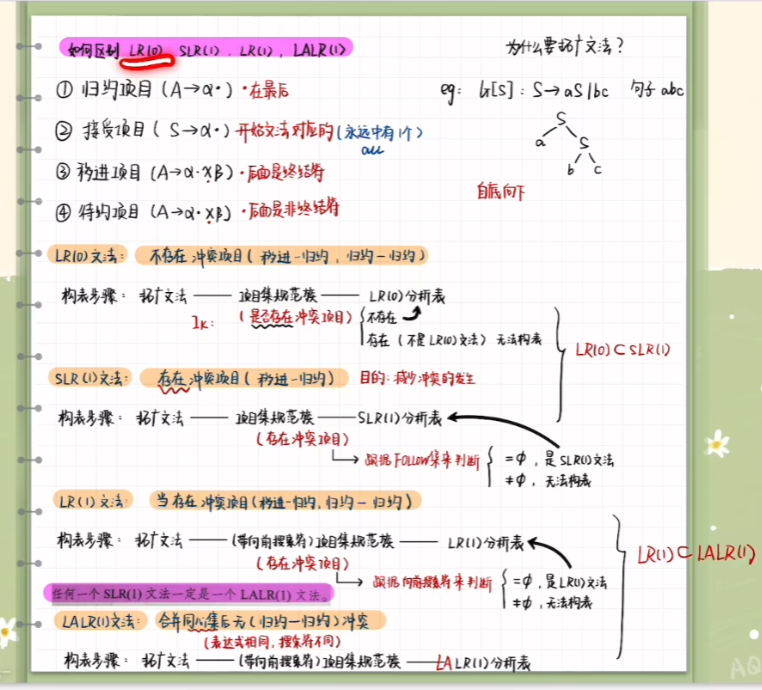 如何区别 LR(0), SLR(1), LR(1), LALR(1)
为什么要拓广文法?
① 归约项目 (A→α·) ·在最后
eg: G[S]: S→aS|bc 句子 abc
② 接受项目 ( S→α·) 开始文法对应的(永远只有1个)
acc
③ 移进项目 (A→α·xβ) ·后面是终结符
④ 待约项目 (A→α·Xβ) ·后面是非终结符
S
a S
b c
自底向下
LR(0)文法: 不存在冲突项目(移进-归约, 归约-归约)
构表步骤: 拓广文法 —— 项目集规范族 —— LR(0)分析表
Ik: (是否存在冲突项目)
不存在
存在 (不是LR(0)文法) 无法构表
LR(0)⊂SLR(1)
SLR(1)文法: 存在冲突项目(移进-归约) 目的:减少冲突的发生
构表步骤: 拓广文法 —— 项目集规范族 —— SLR(1)分析表
(存在冲突项目)
依据FOLLOW集来判断
=φ, 是SLR(1)文法
≠φ, 无法构表
LR(1)文法: 当存在冲突项目(移进-归约, 归约-归约)
构表步骤: 拓广文法 —— (带向前搜索符)项目集规范族 —— LR(1)分析表
(存在冲突项目)
依据向前搜索符来判断
=φ, 是LR(1)文法
≠φ, 无法构表
LR(1)⊂LALR(1)
任何一个 SLR(1) 文法一定是一个 LALR(1) 文法。
LALR(1)文法: 合并同心集后无(归约-归约)冲突
(表达式相同, 搜索符不同)
构表步骤: 拓广文法 —— (带向前搜索符)项目集规范族 —— LALR(1)分析表
AQ